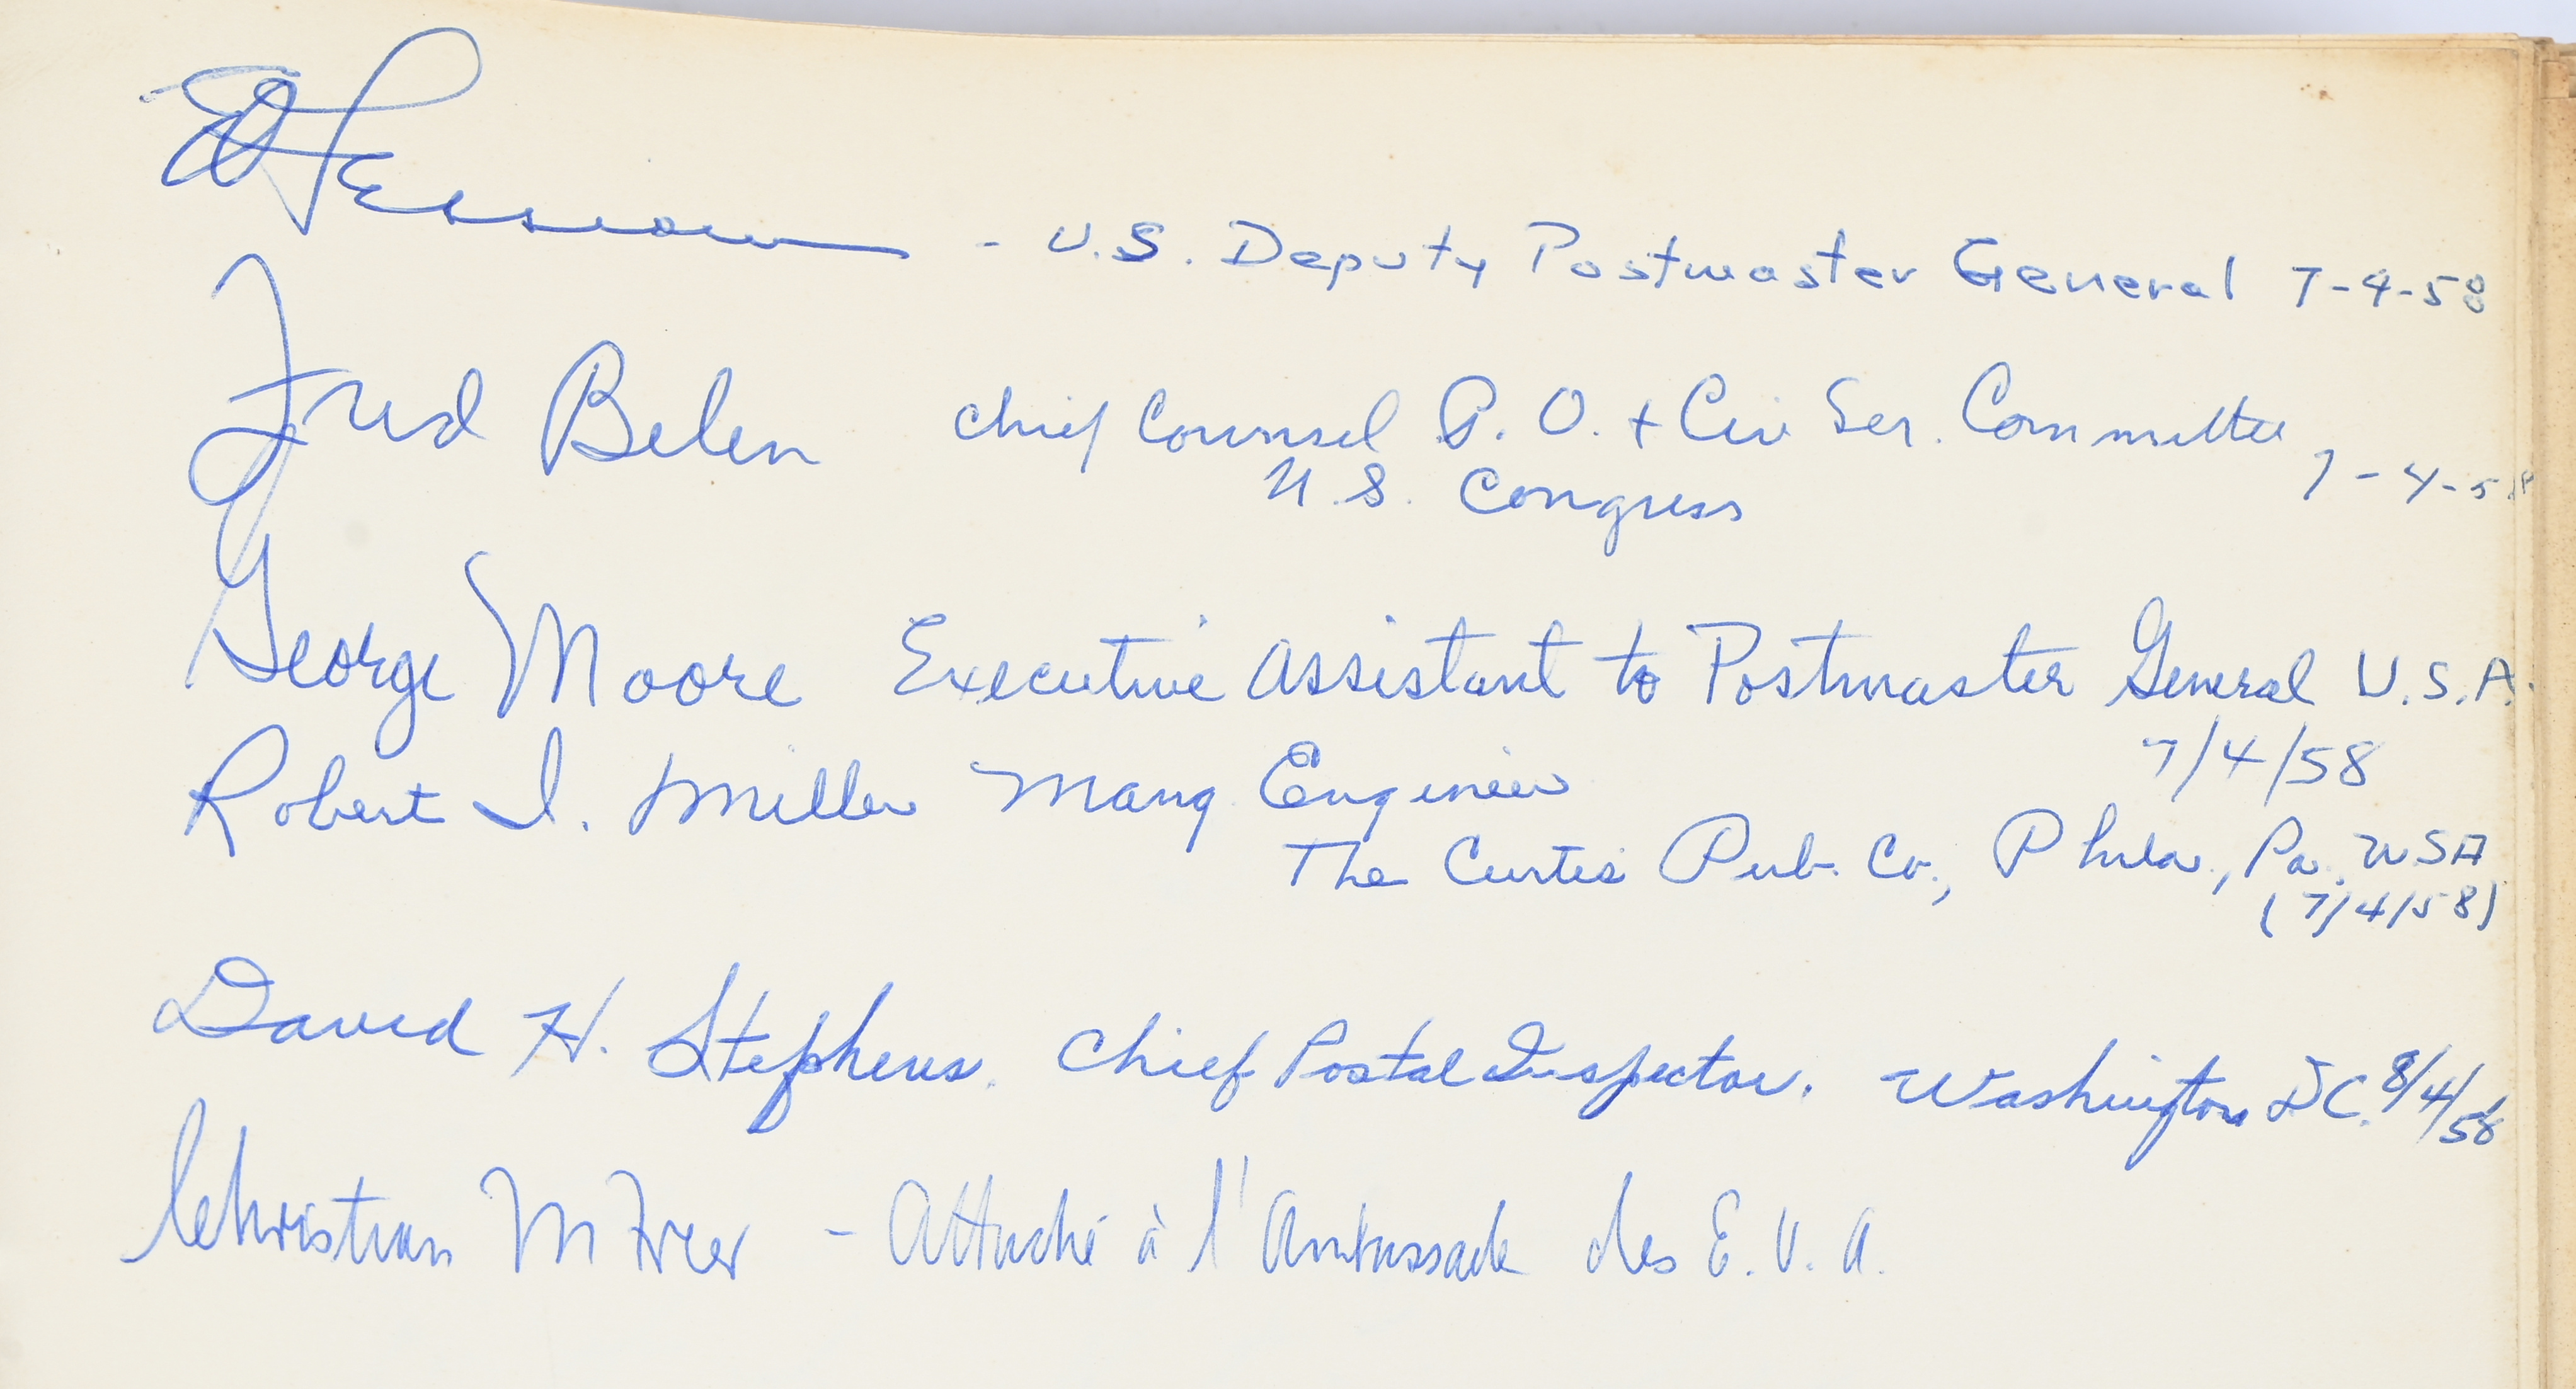 - U.S. Deputy Postmaster General 7-4-58
Fred Belen chief Counsel P. O. + Civ Ser. Committee 7-4-58
U.S. Congress
George Moore Executive Assistant to Postmaster General U.S.A.
7/4/58
Robert I. Miller Mang Engineer
The Curtis Pub. Co., Phila., Pa. USA
(7/4/58)
David H. Stephens. Chief Postal Inspector. Washington DC. 8/4/58
Christian M Freer - Attaché à l'Ambassade des E. U. A.